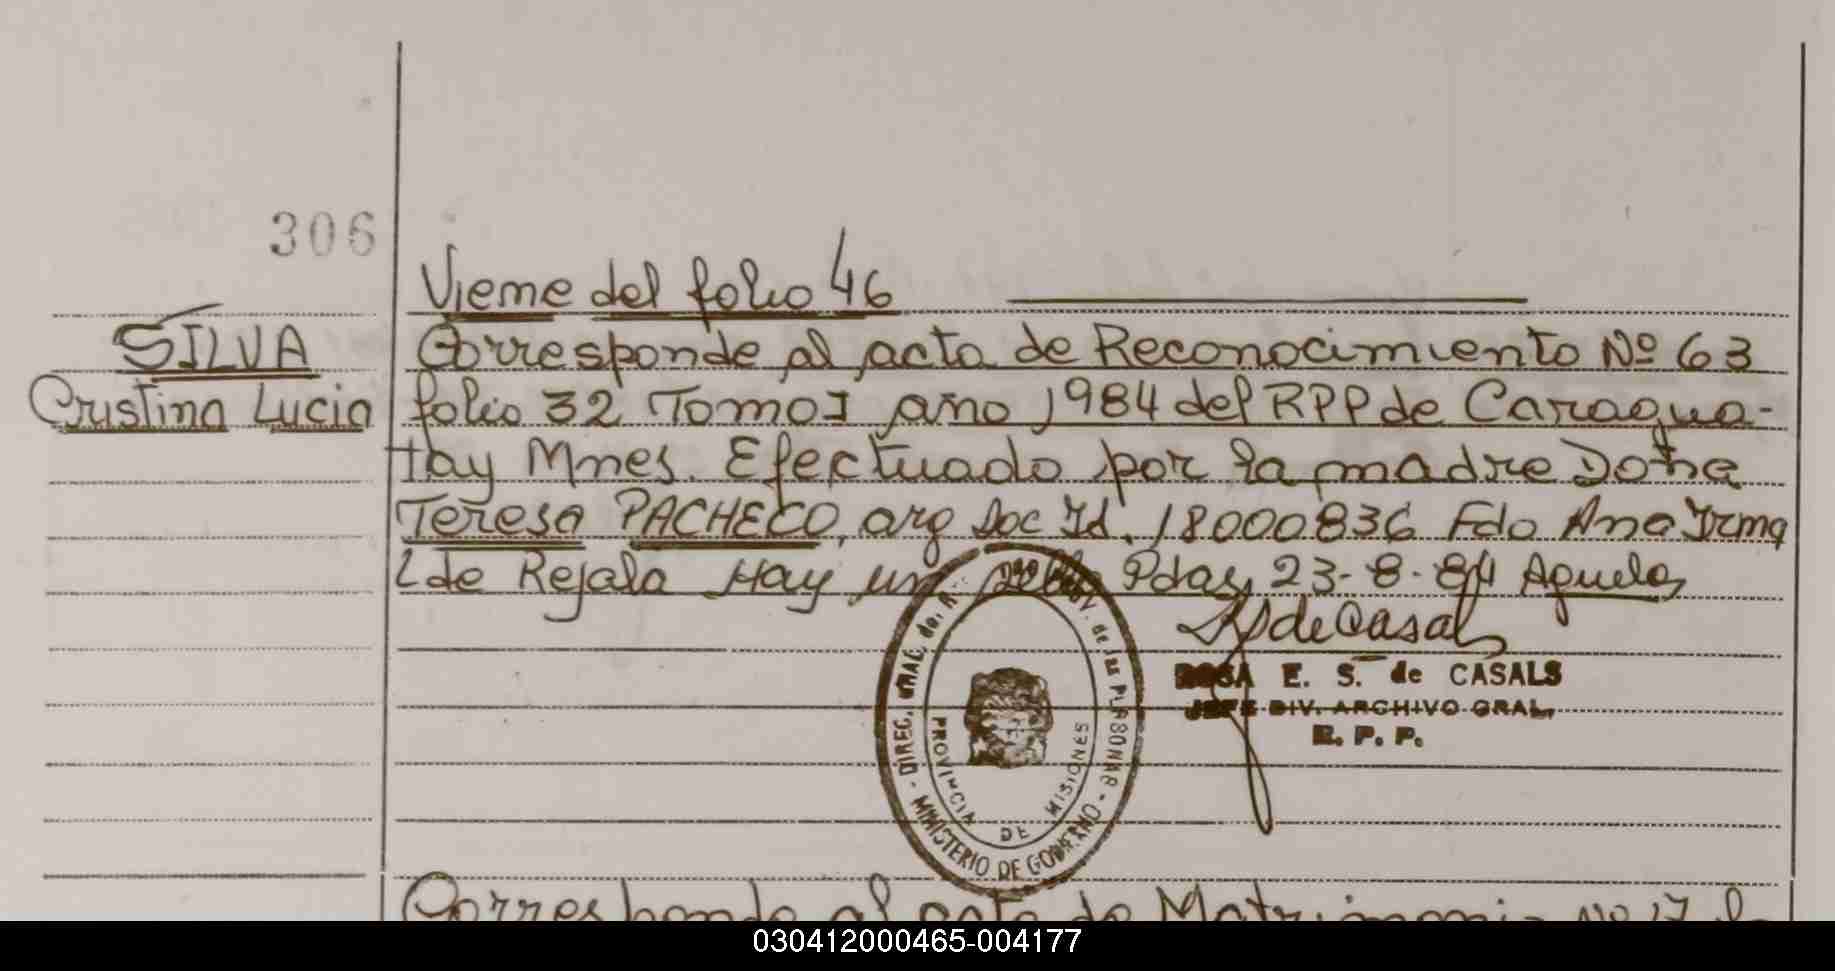 306
Vieme del folio 46
SILVA
Cristina Lucia
Corresponde al acta de Reconocimiento Nº 63
folio 32 Tomo I año 1984 del RPP de Caragua-
tay Mnes. Efectuado por la madre Doña
Teresa PACHECO, arg Doc Id. 18000836 Fdo Ana Irma
L de Rejala Hay un sello Pdas, 23-8-84
de Casals
ROSA E. S. de CASALS
JEFE DIV. ARCHIVO GRAL.
R. P. P.
DIREC. GRAL. de de las PERSONAS - MINISTERIO DE GOBIERNO -
PROVINCIA DE MISIONES
Corresponde al acta de Matrimonio Nº 17
030412000465-004177